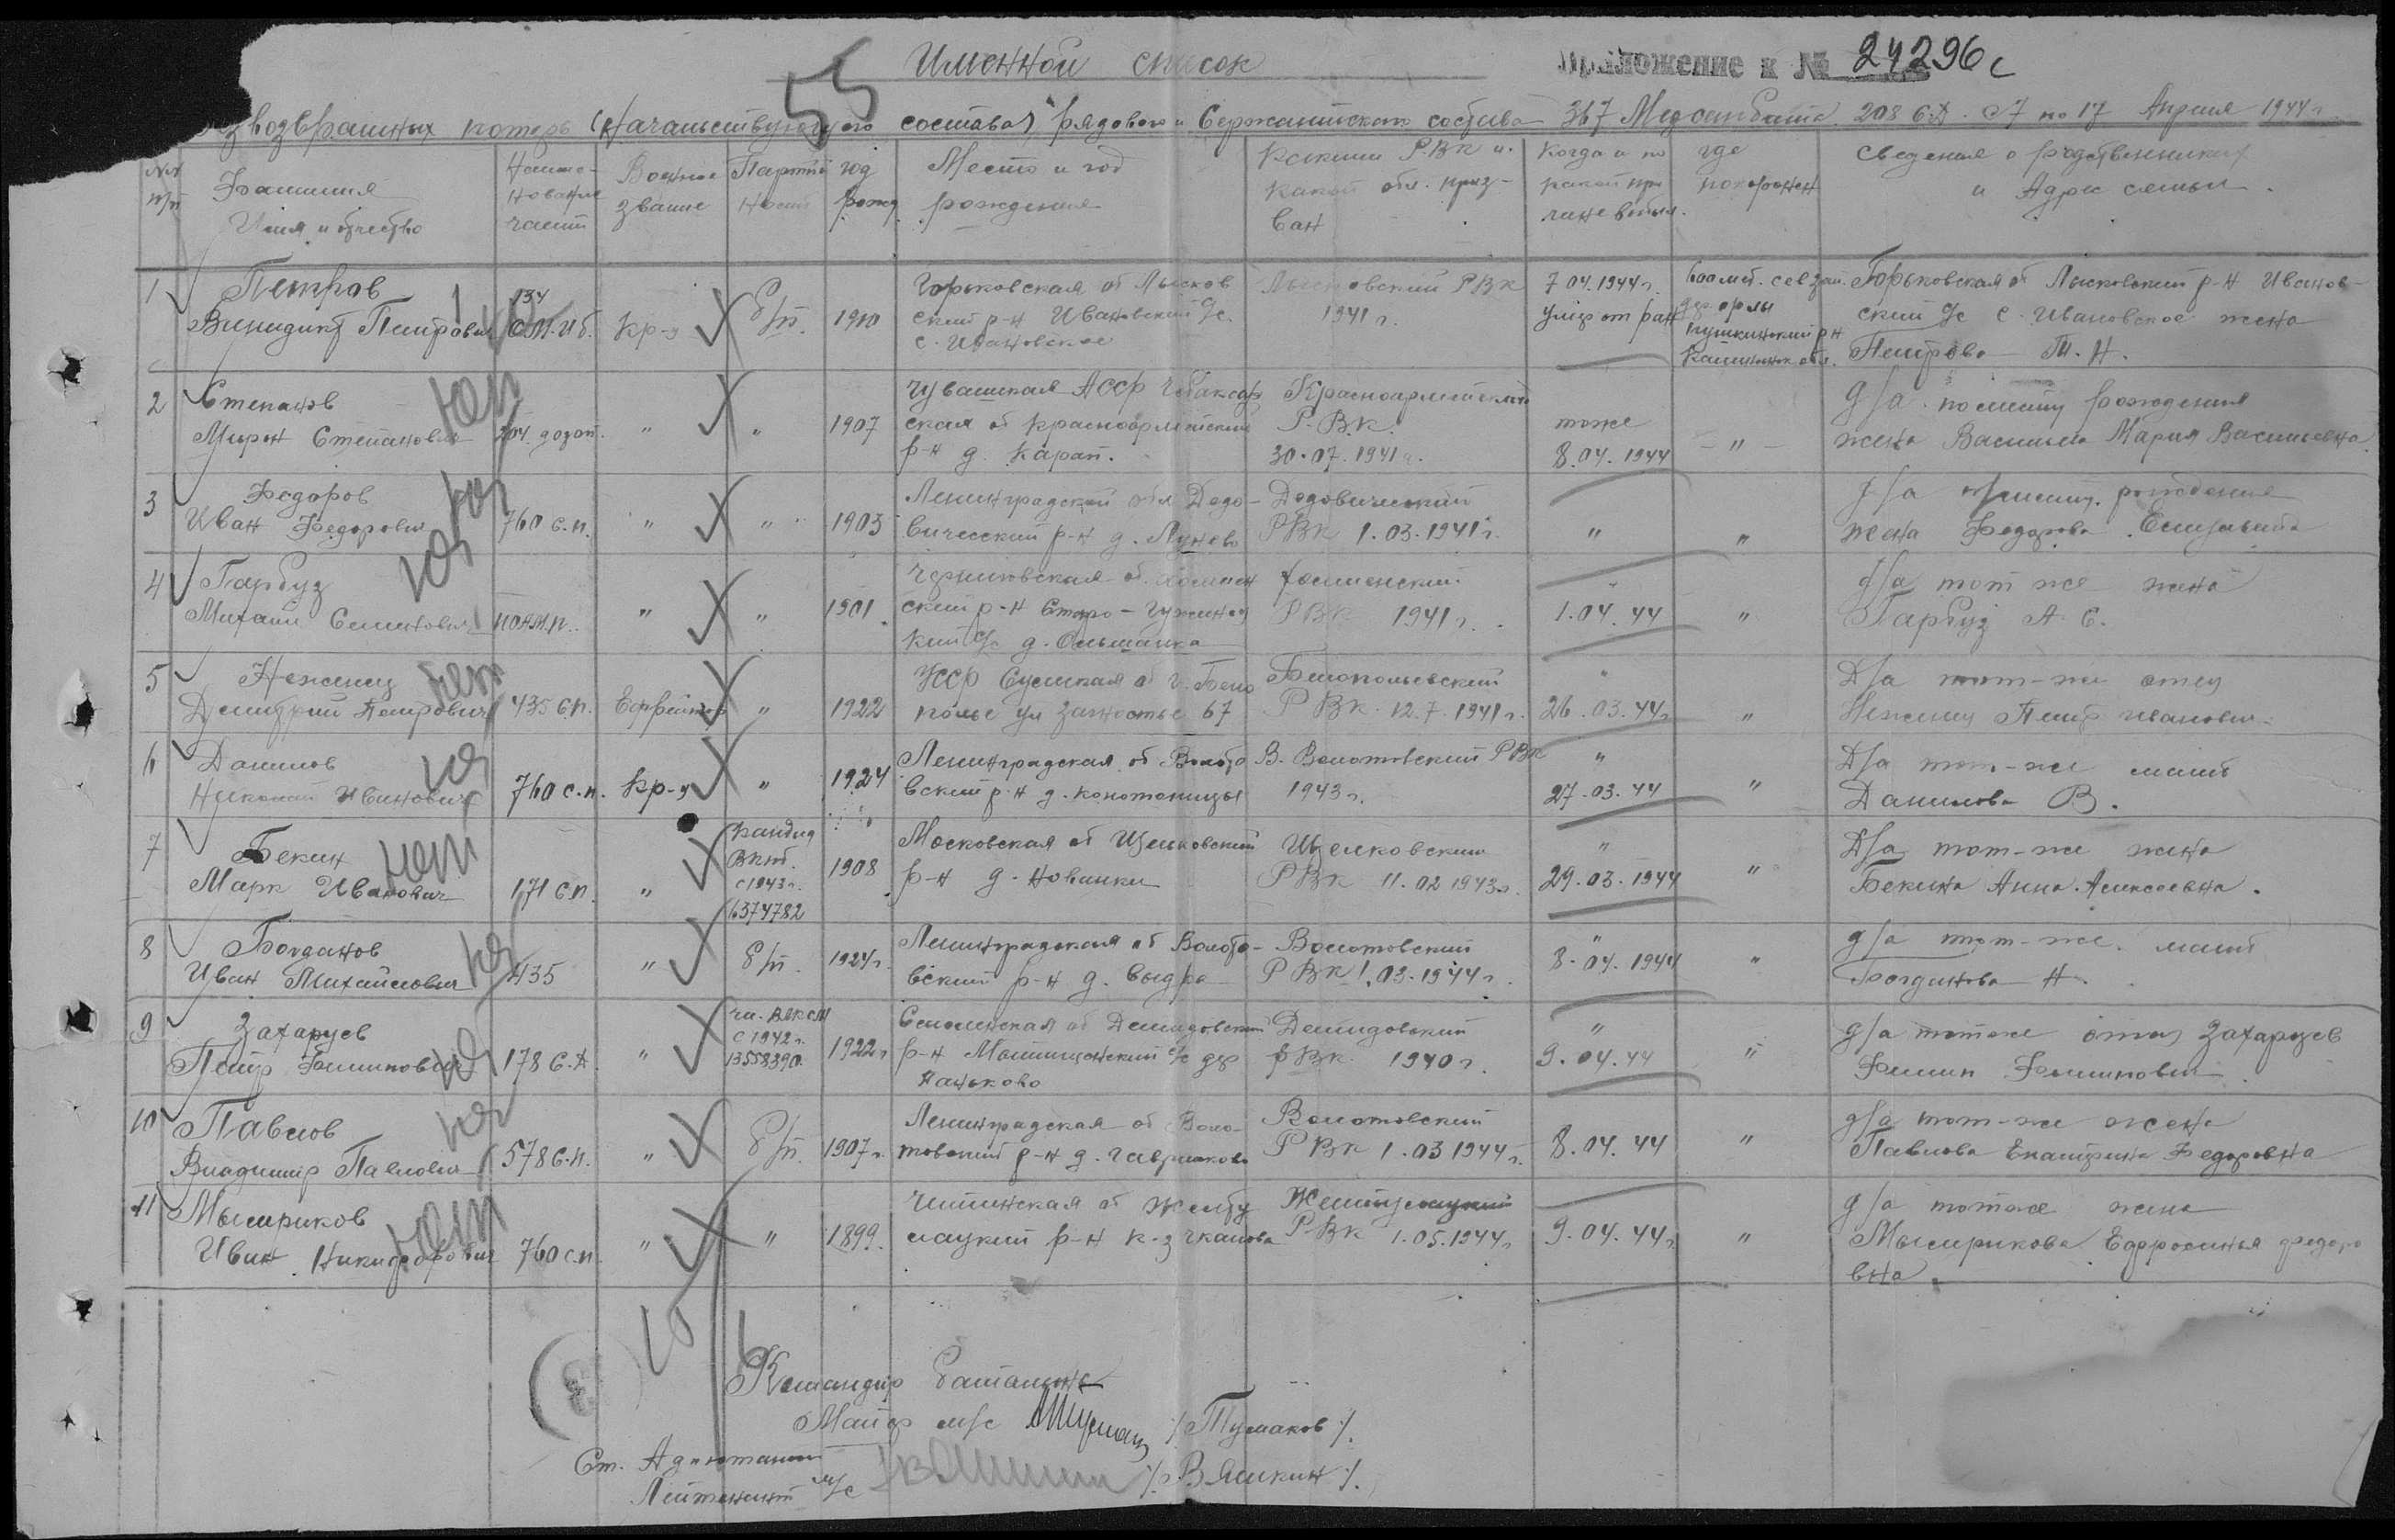 Именной список
55
Приложение к № 24296с
безвозвратных потерь (начальствующего состава) рядового и Сержантского состава 367 Медсанбата 208 С.Д. с 7 по 17 Апреля 1944 г.
№№ п/п
Фамилия Имя и отчество
Наиме-нование части
Военное звание
Партий ность
год рожд.
Место и год рождения
Каким Р.В.К и какой обл. приз-ван
Когда и по какой при чине выбыл.
где похоронен
Сведения о родственниках и Адрес семьи.
1
Петров
Винидикт Петрович
134 О.М.И.б.
Кр-ц
б/п.
1910
Горьковская об Лысков
ский р-н Ивановский с/с.
с. Ивановское
Лысковский РВК
1941 г.
7.04.1944 г.
умер от ран
600 мет. сев. зап.
дер. орлы
пушкинский р-н
Калининск. обл.
Горьковская об Лысковский р-н Иванов-
ский с/с с. Ивановское жена
Петрова Т. Н.
2
Степанов
Мирон Степанович
"
"
1907
Чувашская АССР Чебоксар
ская об Красноармейский
р-н д. Карай.
Красноармейский
Р.В.К.
30.07.1941 г.
тоже
8.04.1944
- " -
д/а по месту рождения
жена Васильева Мария Васильевна
3
Федоров
Иван Федорович
760 с.п.
"
"
1903
Ленинградской обл Дедо-
вичесский р-н д. Лунево
Дедовичский
РВК 1.03.1941 г.
"
"
д/а по месту рождения
жена Федорова Елизавета
4
Гарбуз
Михаил Семенович
"
"
1901
ский р-н Старо-
кий с/с д. Ольшанка
РВК 1941 г.
1.04.44
"
д/а тот же жена
Гарбуз А. С.
5
Нежинец
Дмитрий Петрович
нет
435 с.п.
Ефрейтор
"
1922
УССР Сумская об г. Бело
полье ул Заностье 67
Белопольевский
РВК. 12.7.1941 г.
"
26.03.44 г.
"
Д/а тот-же отец
Нежинец Петр Иванович
6
Данилов
Николай Иванович
760 с.п.
Кр-ц
"
1924
Ленинградская об Волото
вский р-н д. Конотопицы
В. Волотовский РВК
1943 г.
"
27.03.44
"
Д/а тот-же мать
Данилова В.
7
Бекин
Марк Иванович
нет
171 с.п.
"
Кандид
ВКпб.
с 1943 г.
6374782
1908
Московская об Щелковский
р-н д. Новинки
Щелковский
РВК 11.02 1943 г.
"
29.03.1944
"
Д/а тот-же жена
Бекина Анна Алексеевна.
8
Богданов
Иван Михайлович
435
"
б/п.
1924 г.
Ленинградская об Волото-
вский р-н д. Выдра
Волотовский
РВК 1.03.1944 г.
"
8.04.1944
"
д/а тот-же мать
Богданова Н.
9
Захарцев
Петр Фомикович
178 С.Д.
"
чл. ВЛКСМ
с 1942 г.
13558390.
1922 г.
Смоленская об Демидовский
р-н с/с дер
Паньково
Демидовский
РВК 1940 г.
"
9.04.44
"
д/а тотже отец Захарцев
10
Павлов
Владимир Павлович
578 с.п.
"
б/п.
1907 г.
Ленинградская об Воло-
товский р-н д. Гаврилково
Волотовский
РВК 1.03 1944 г.
8.04.44
"
д/а тот-же жена
Павлова Екатерина Федоровна
11
Мысириков
Иван Никифорович
нет
760 с.п.
"
"
1899.
Читинская об
р-н к-з Чкалова
РВК 1.05.1944 г.
9.04.44 г.
"
д/а тотже жена
Мысирикова Ефросинья федоро
вна.
Командир батальона
Майор м/с /Тумаков/.
Ст. Адьютант
Лейтенант м/с /Вяшкин/.